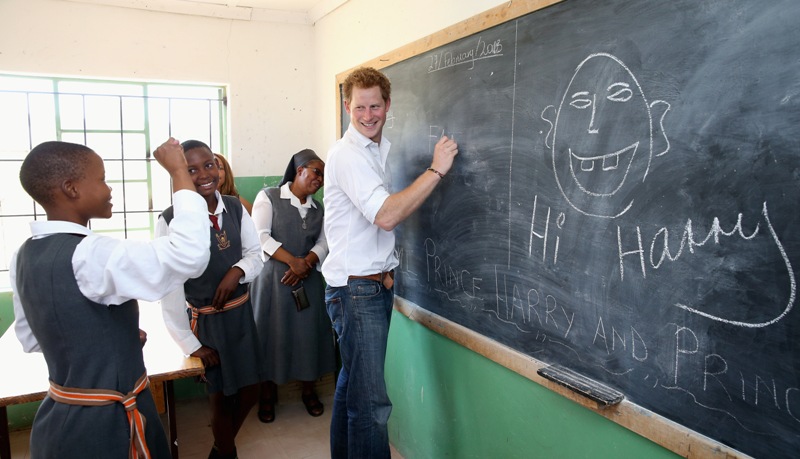 27/February/2013
F
Hi Harry
PRINCE HARRY AND PRINC